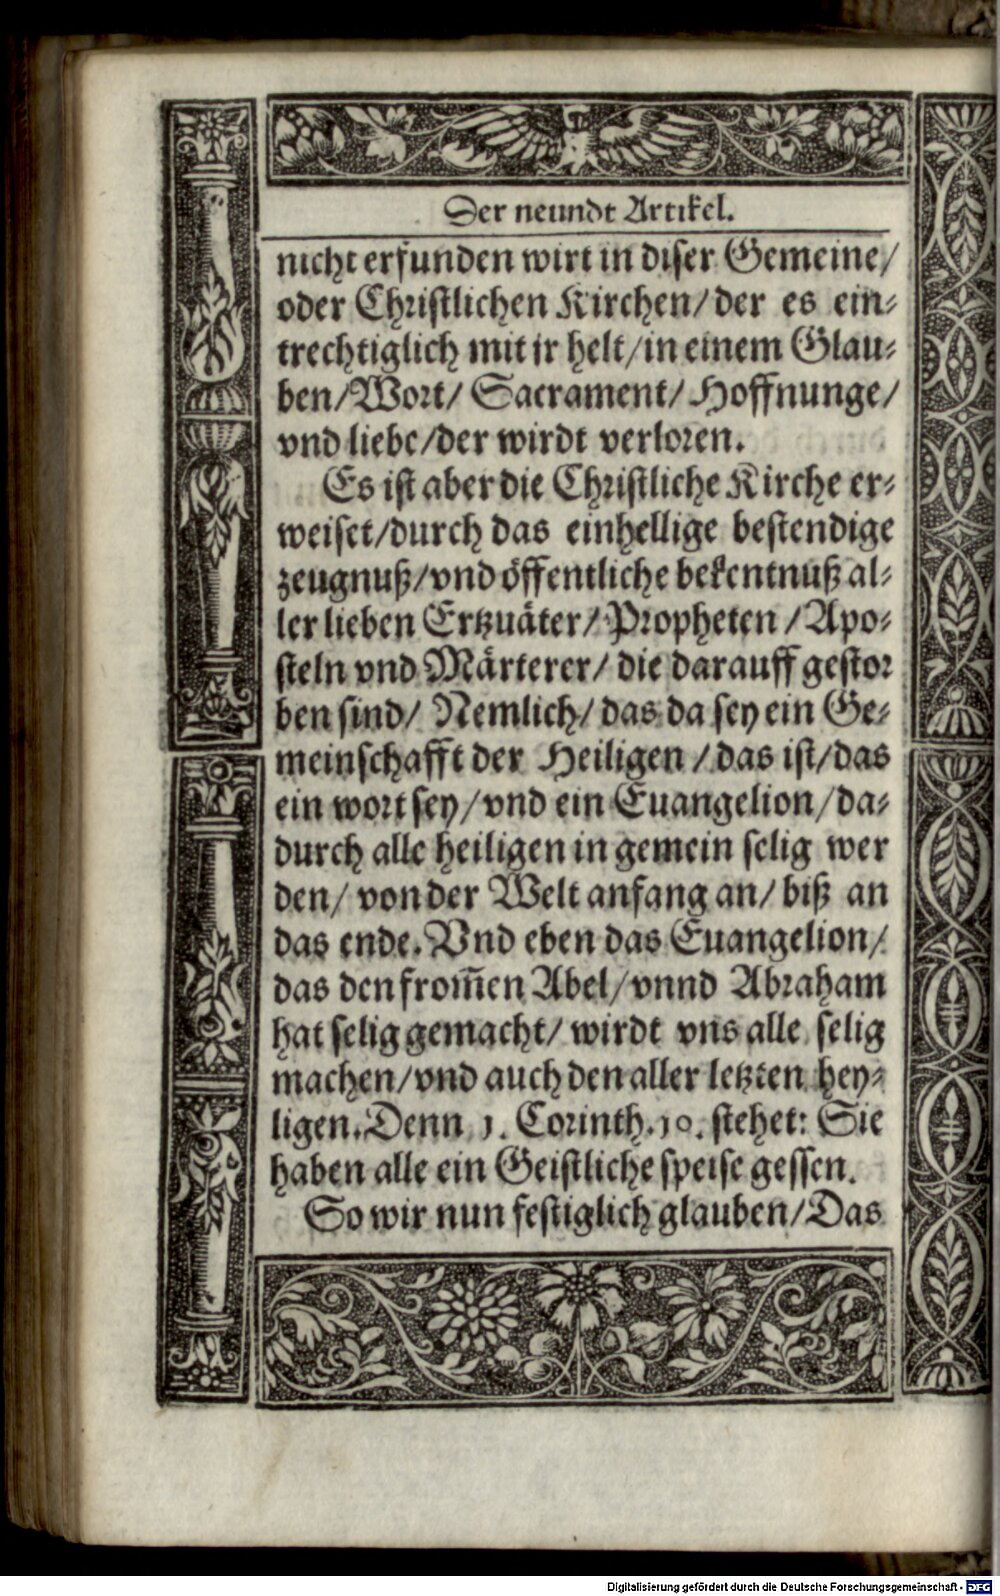 Der neundt Artikel.
nicht erfunden wirt in diser Gemeine/
oder Christlichen Kirchen/der es ein⸗
trechtiglich mit ir helt/in einem Glau⸗
ben/Wort/ Sacrament/ Hoffnunge/
vnd liebe/der wirdt verloren.
Es ist aber die Christliche Kirche er⸗
weiset/durch das einhellige bestendige
zeugnuß/vnd öffentliche bekentnuß al⸗
ler lieben Ertzuäter/ Propheten /Apo⸗
steln vnd Märterer/ die darauff gestor
ben sind/ Nemlich/ das da sey ein Ge⸗
meinschafft der Heiligen /das ist/das
ein wort sey/vnd ein Euangelion/da⸗
durch alle heiligen in gemein selig wer
den/ von der Welt anfang an/ biß an
das ende. Vnd eben das Euangelion/
das den from̃en Abel/vnnd Abraham
hat selig gemacht/ wirdt vns alle selig
machen/vnd auch den aller letzten hey⸗
ligen. Denn 1. Corinth. 10. stehet: Sie
haben alle ein Geistliche speise gessen.
So wir nun festiglich glauben/Das
Digitalisierung gefördert durch die Deutsche Forschungsgemeinschaft - DFG